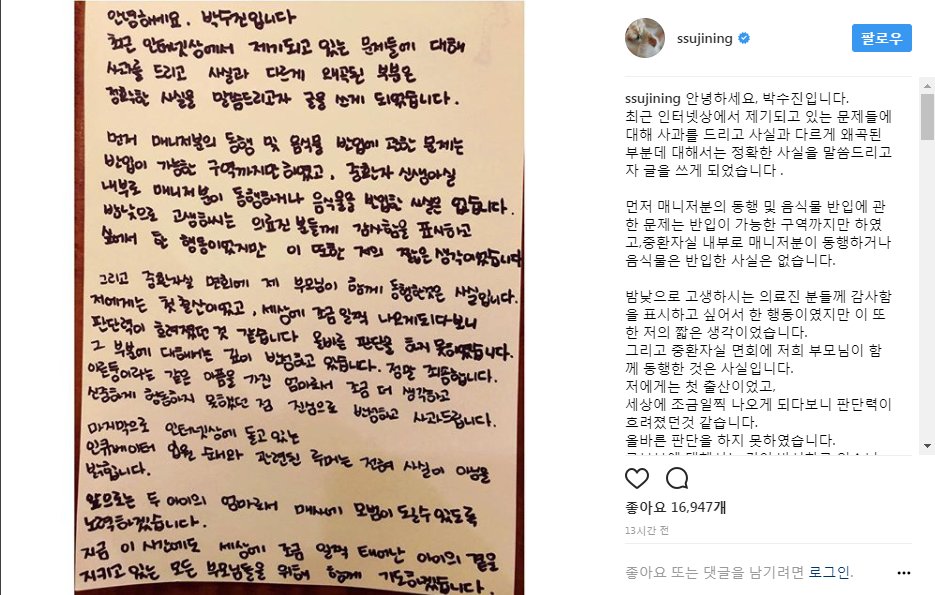 안녕하세요. 박수진입니다
최근 인터넷상에서 제기되고 있는 문제들에 대해
사과를 드리고 사실과 다르게 왜곡된 부분은
정확한 사실을 말씀드리고자 글을 쓰게 되었습니다.
먼저 매니저분의 동행 및 음식물 반입에 관한 문제는
반입이 가능한 구역까지만 하였고, 중환자 신생아실
내부로 매니저분이 동행하거나 음식물을 반입한 사실은 없습니다.
밤낮으로 고생하시는 의료진 분들께 감사함을 표시하고
싶어서 한 행동이었지만 이 또한 저의 짧은 생각이었습니다
그리고 중환자실 면회에 제 부모님이 함께 동행한것은 사실입니다.
저에게는 첫 출산이었고, 세상에 조금 일찍 나오게되다보니
판단력이 흐려졌던 것 같습니다 올바른 판단을 하지 못하였습니다.
그 부분에 대해서는 깊이 반성하고 있습니다. 정말 죄송합니다.
이른둥이라는 같은 아픔을 가진 엄마로서 조금 더 생각하고
신중하게 행동하지 못했던 점 진심으로 반성하고 사과드립니다.
마지막으로 인터넷상에 돌고 있는
인큐베이터 입원 순서와 관련된 루머는 전혀 사실이 아님을
밝힙니다.
앞으로는 두 아이의 엄마로서 매사에 모범이 되일수 있도록
노력하겠습니다.
지금 이 시간에도 세상에 조금 일찍 태어난 아이의 곁을
지키고 있는 모든 부모님들을 위해 함께 기도하겠습니다.
ssujining
팔로우
ssujining 안녕하세요, 박수진입니다.
최근 인터넷상에서 제기되고 있는 문제들에
대해 사과를 드리고 사실과 다르게 왜곡된
부분데 대해서는 정확한 사실을 말씀드리고
자 글을 쓰게 되었습니다 .
먼저 매니저분의 동행 및 음식물 반입에 관
한 문제는 반입이 가능한 구역까지만 하였
고,중환자실 내부로 매니저분이 동행하거나
음식물은 반입한 사실은 없습니다.
밤낮으로 고생하시는 의료진 분들께 감사함
을 표시하고 싶어서 한 행동이였지만 이 또
한 저의 짧은 생각이었습니다.
그리고 중환자실 면회에 저희 부모님이 함
께 동행한 것은 사실입니다.
저에게는 첫 출산이었고,
세상에 조금일찍 나오게 되다보니 판단력이
흐려졌던것 같습니다.
올바른 판단을 하지 못하였습니다.
좋아요 16,947개
13시간 전
좋아요 또는 댓글을 남기려면 로그인.